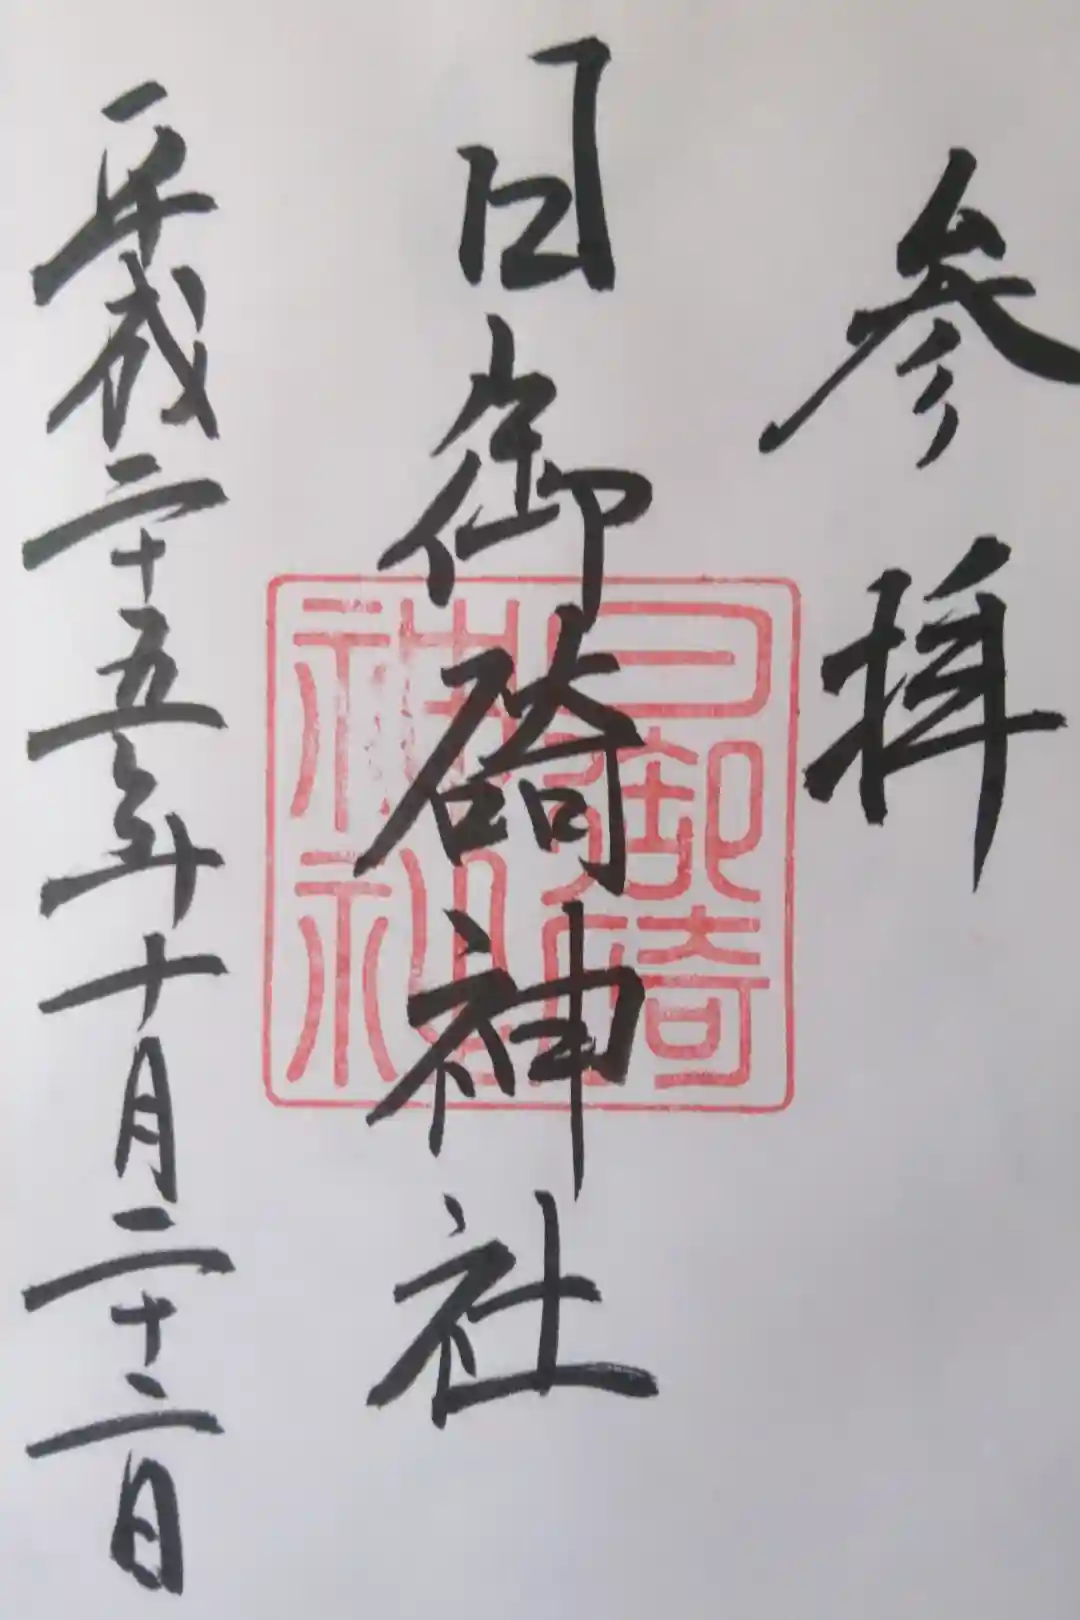 参拝
日御碕神社
日御碕
神社
平成二十五年十月二十二日